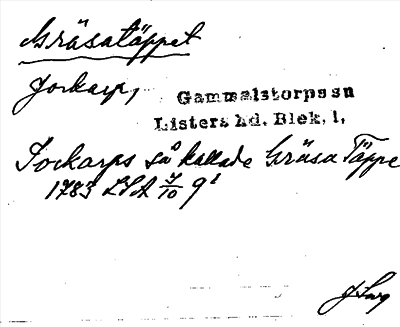 Gräsatäppet
Jockarp,
Gammalstorps sn
Listers hd. Blek. l.
Jockarps så kallade Gräsa Täppe
1783 LSA 7/10 9¹